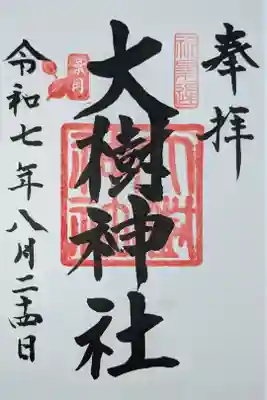 奉拝
大樹神社
令和七年八月二十四日
葉月